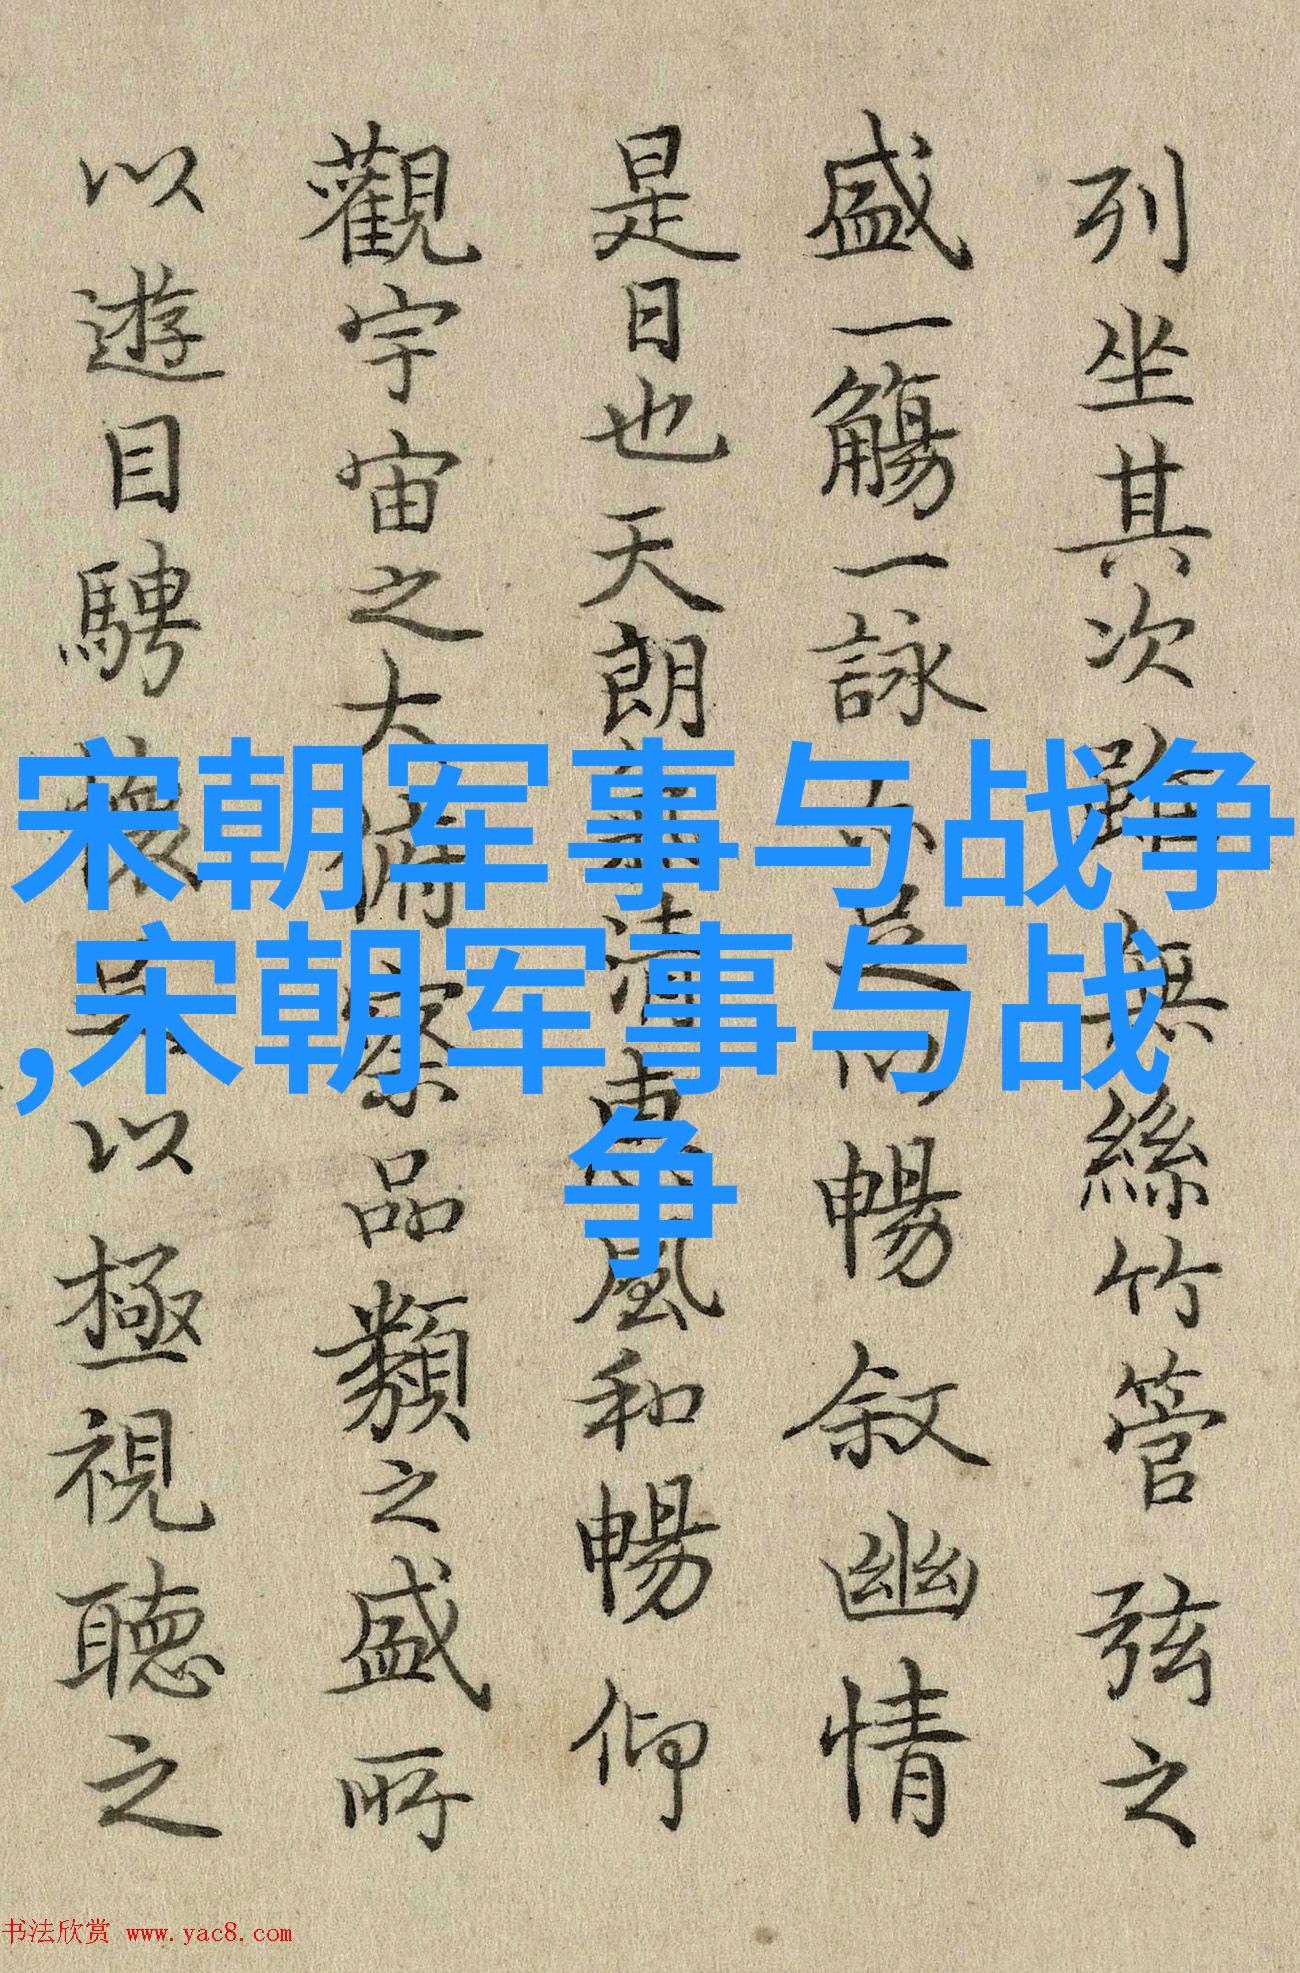 列坐其次雖無絲竹管弦之
盛一觴一詠亦足以暢叙幽情
是日也天朗氣清惠風和暢仰
觀宇宙之大俯察品類之盛所
以遊目騁懷足以極視聽之
宋朝军事与战争
,宋朝军事与战
争
书法欣赏 www.yac8.com